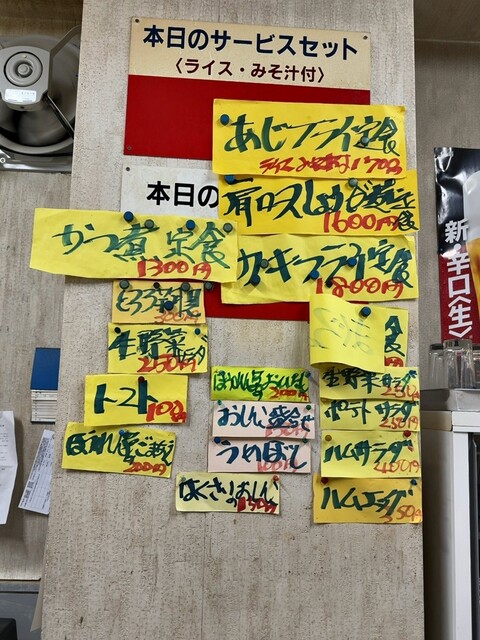 本日のサービスセット
〈ライス・みそ汁付〉
あじフライ定食
本日の
肩ロースしょうが焼定食
1600円
かつ煮定食
1300円
カキフライ定食
1800円
食
円
300円
生野菜サラダ
250円
トマト
100円
ほうれん草ごまあえ
200円
ほうれん草おひたし
200円
おしんこ盛合せ
150円
つめぼし
100円
はくさいのおしんこ
150円
生野菜サラダ
250円
ポテトサラダ
250円
ハムサラダ
400円
ハムエッグ
350円
新・辛口〈生〉